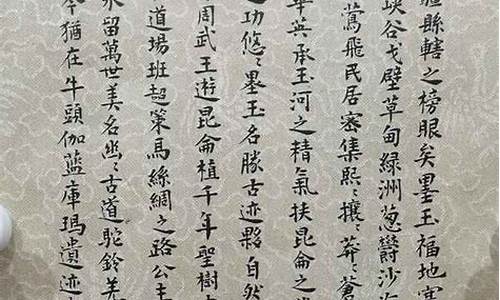 疆縣轄之榜眼矣墨玉福地寶
峽谷戈壁草甸綠洲葱欝沙海
鶯飛民居密集熙〻攘〻莽〻蒼
華英承玉河之精氣扶昆侖之
之功悠〻墨玉名勝古迹夥自然
周武王遊昆侖植千年聖樹
道場班超策馬絲綢之路公主
永留萬世美名幽〻古道駝鈴羌
今猶在牛頭伽藍庫瑪遺迹